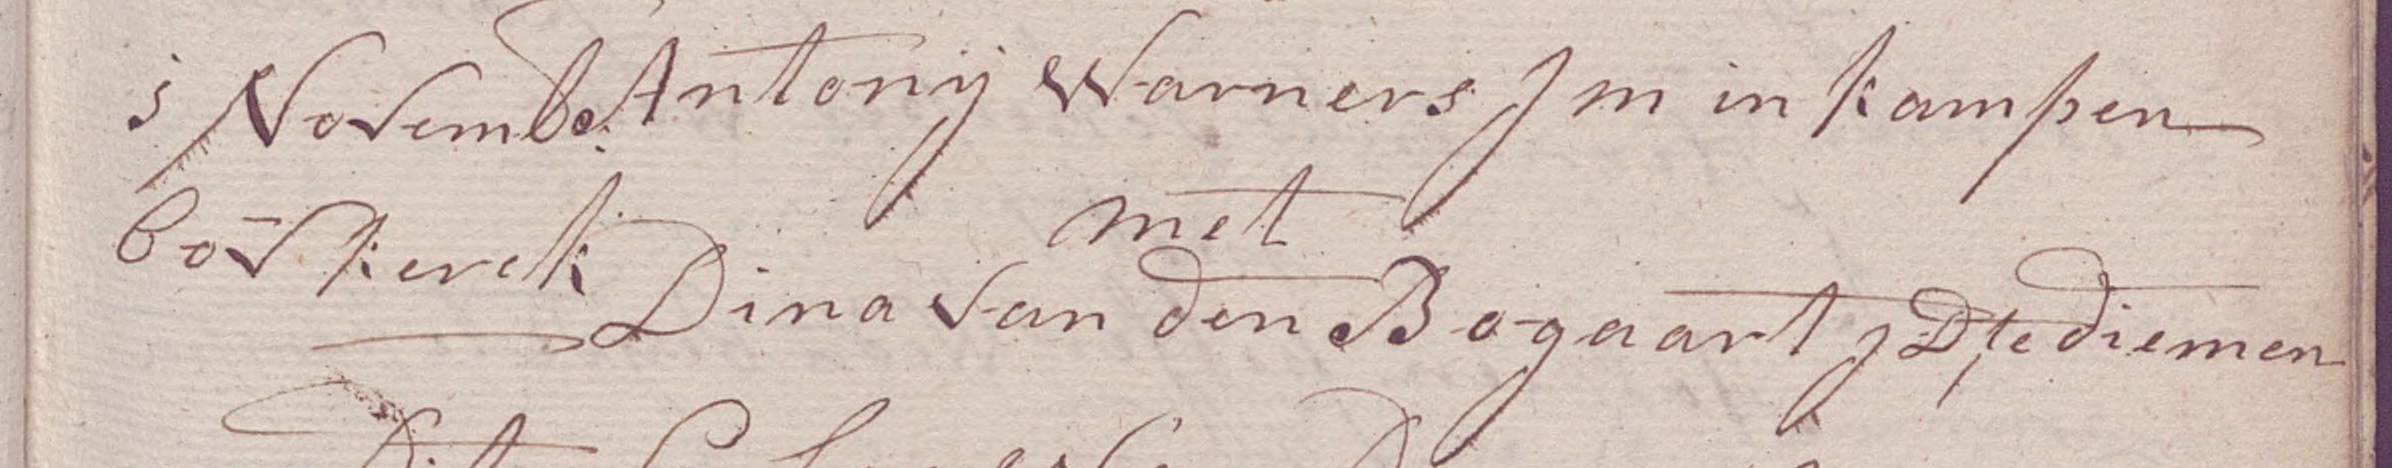 5 Novemb. Antonij Warners J m in kampen
bov kerck met
Dina van den Bogaart J D te diemen